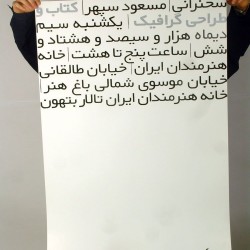 سخنرانی | مسعود سپهر | کتاب و
طراحی گرافیک | یکشنبه سیم
دیماه هزار و سیصد و هشتاد و
شش | ساعت پنج تا هشت | خانه
هنرمندان ایران | خیابان طالقانی
خیابان موسوی شمالی باغ هنر |
خانه هنرمندان ایران تالار بتهون